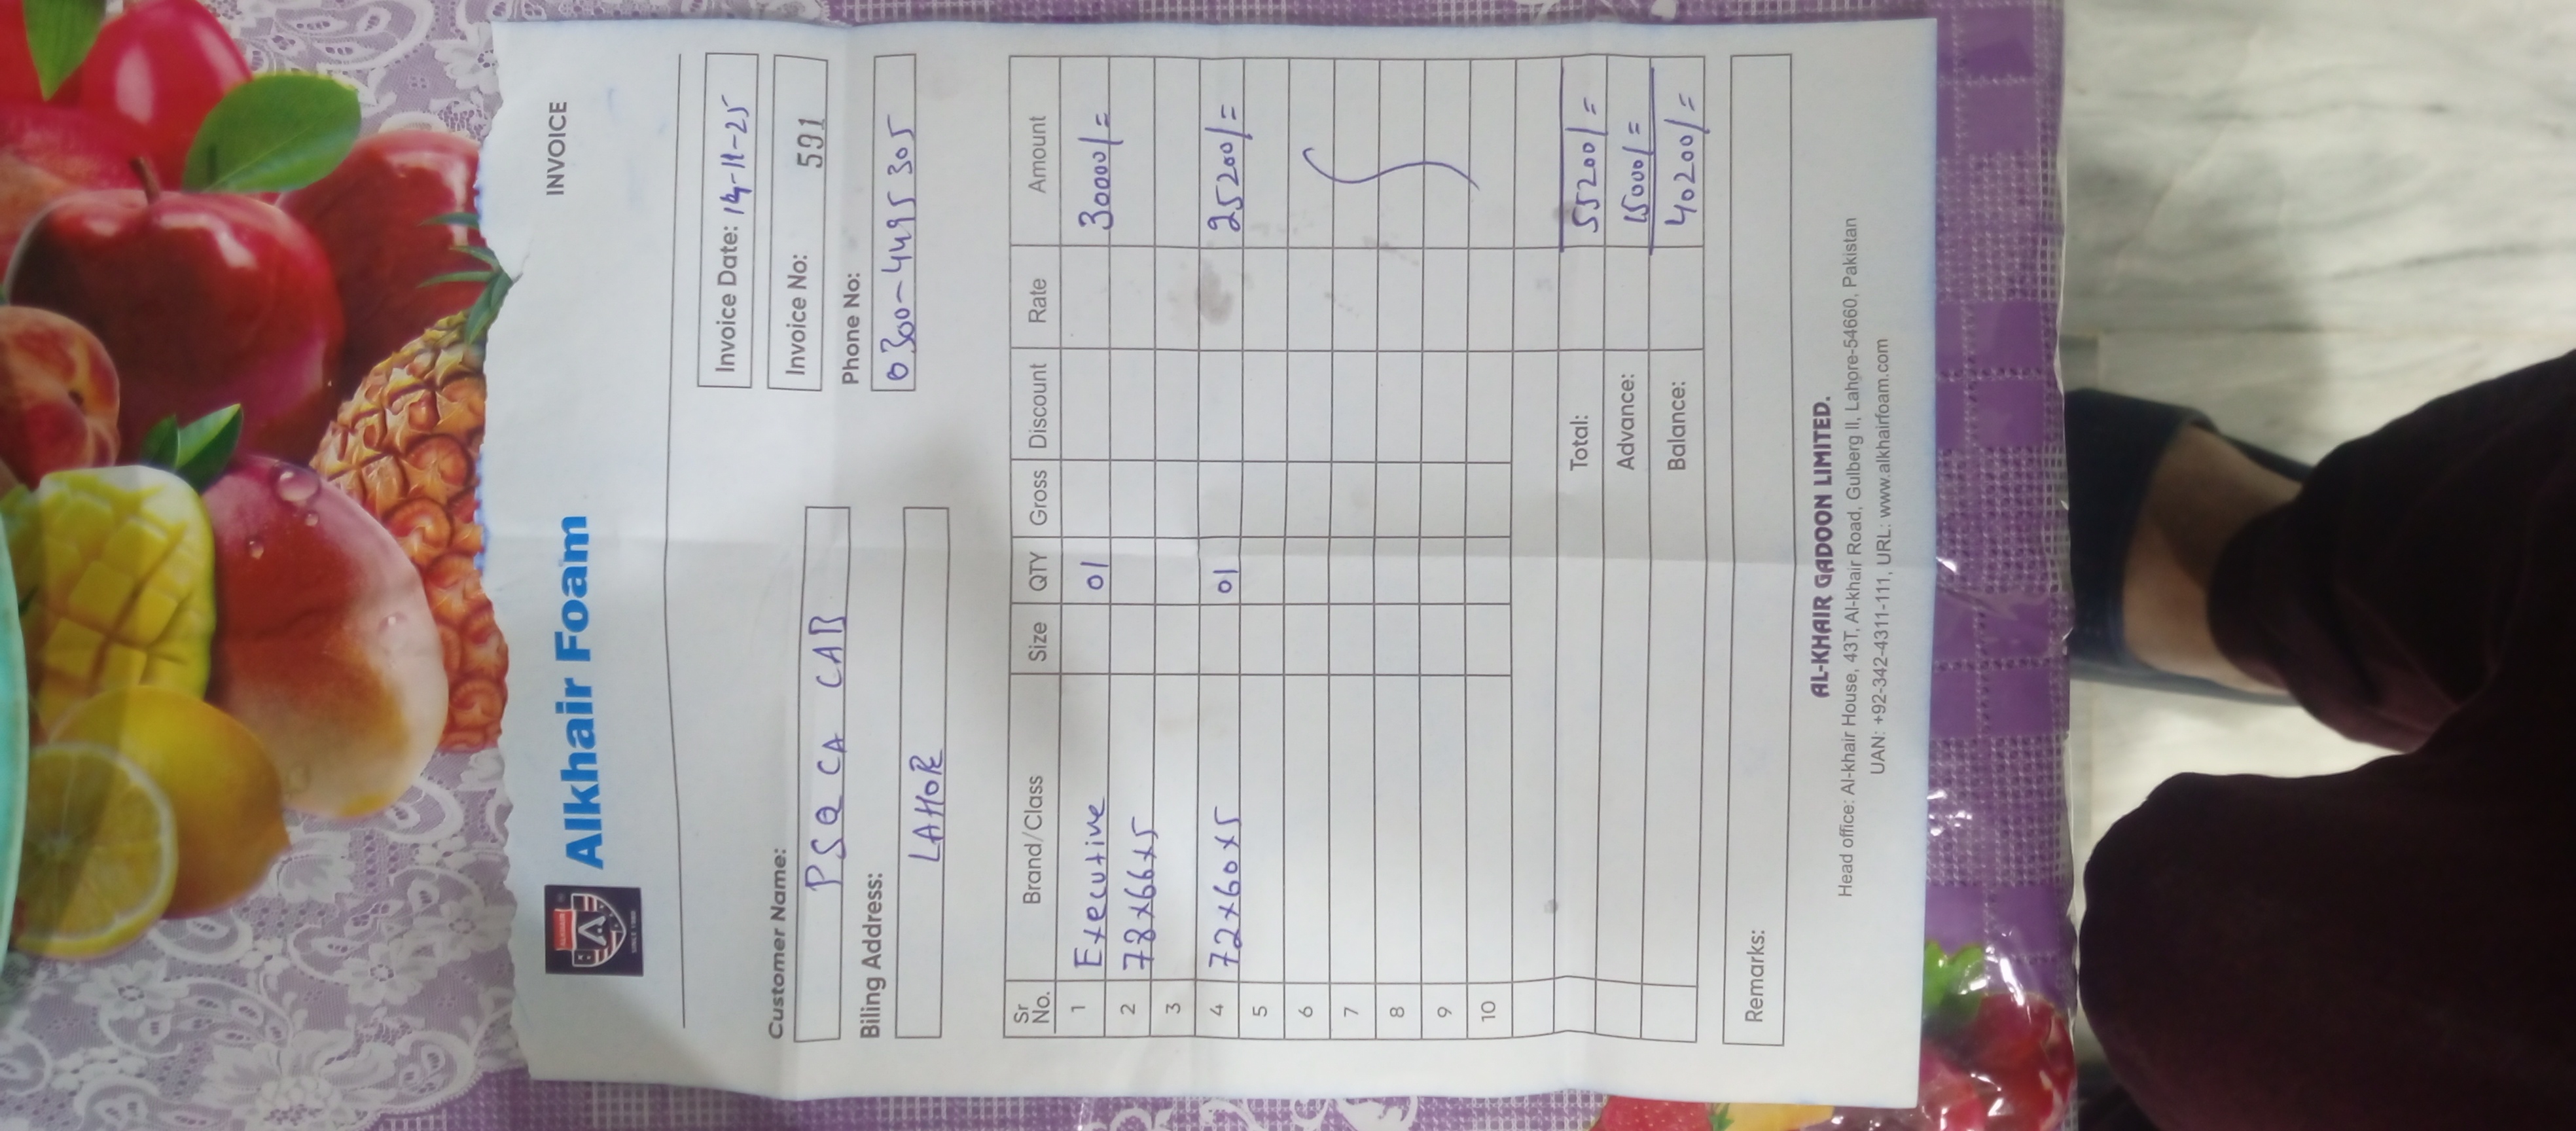 Alkhair Foam
INVOICE
Invoice Date: 14-11-25
Invoice No: 591
Customer Name:
PSQ CA CAB
Phone No:
0300-4495305
Biling Address:
LAHOR
Sr No. Brand/Class Size QTY Gross Discount Rate Amount
1 Executive 01 30000/=
2 78x66x5
3
4 72x60x5 01 25200/=
5
6
7
8
9
10
Total: 55200/=
Advance: 15000/=
Balance: 40200/=
Remarks:
AL-KHAIR GADOON LIMITED.
Head office: Al-khair House, 43T, Al-khair Road, Gulberg II, Lahore-54660, Pakistan
UAN: +92-342-4311-111, URL: www.alkhairfoam.com